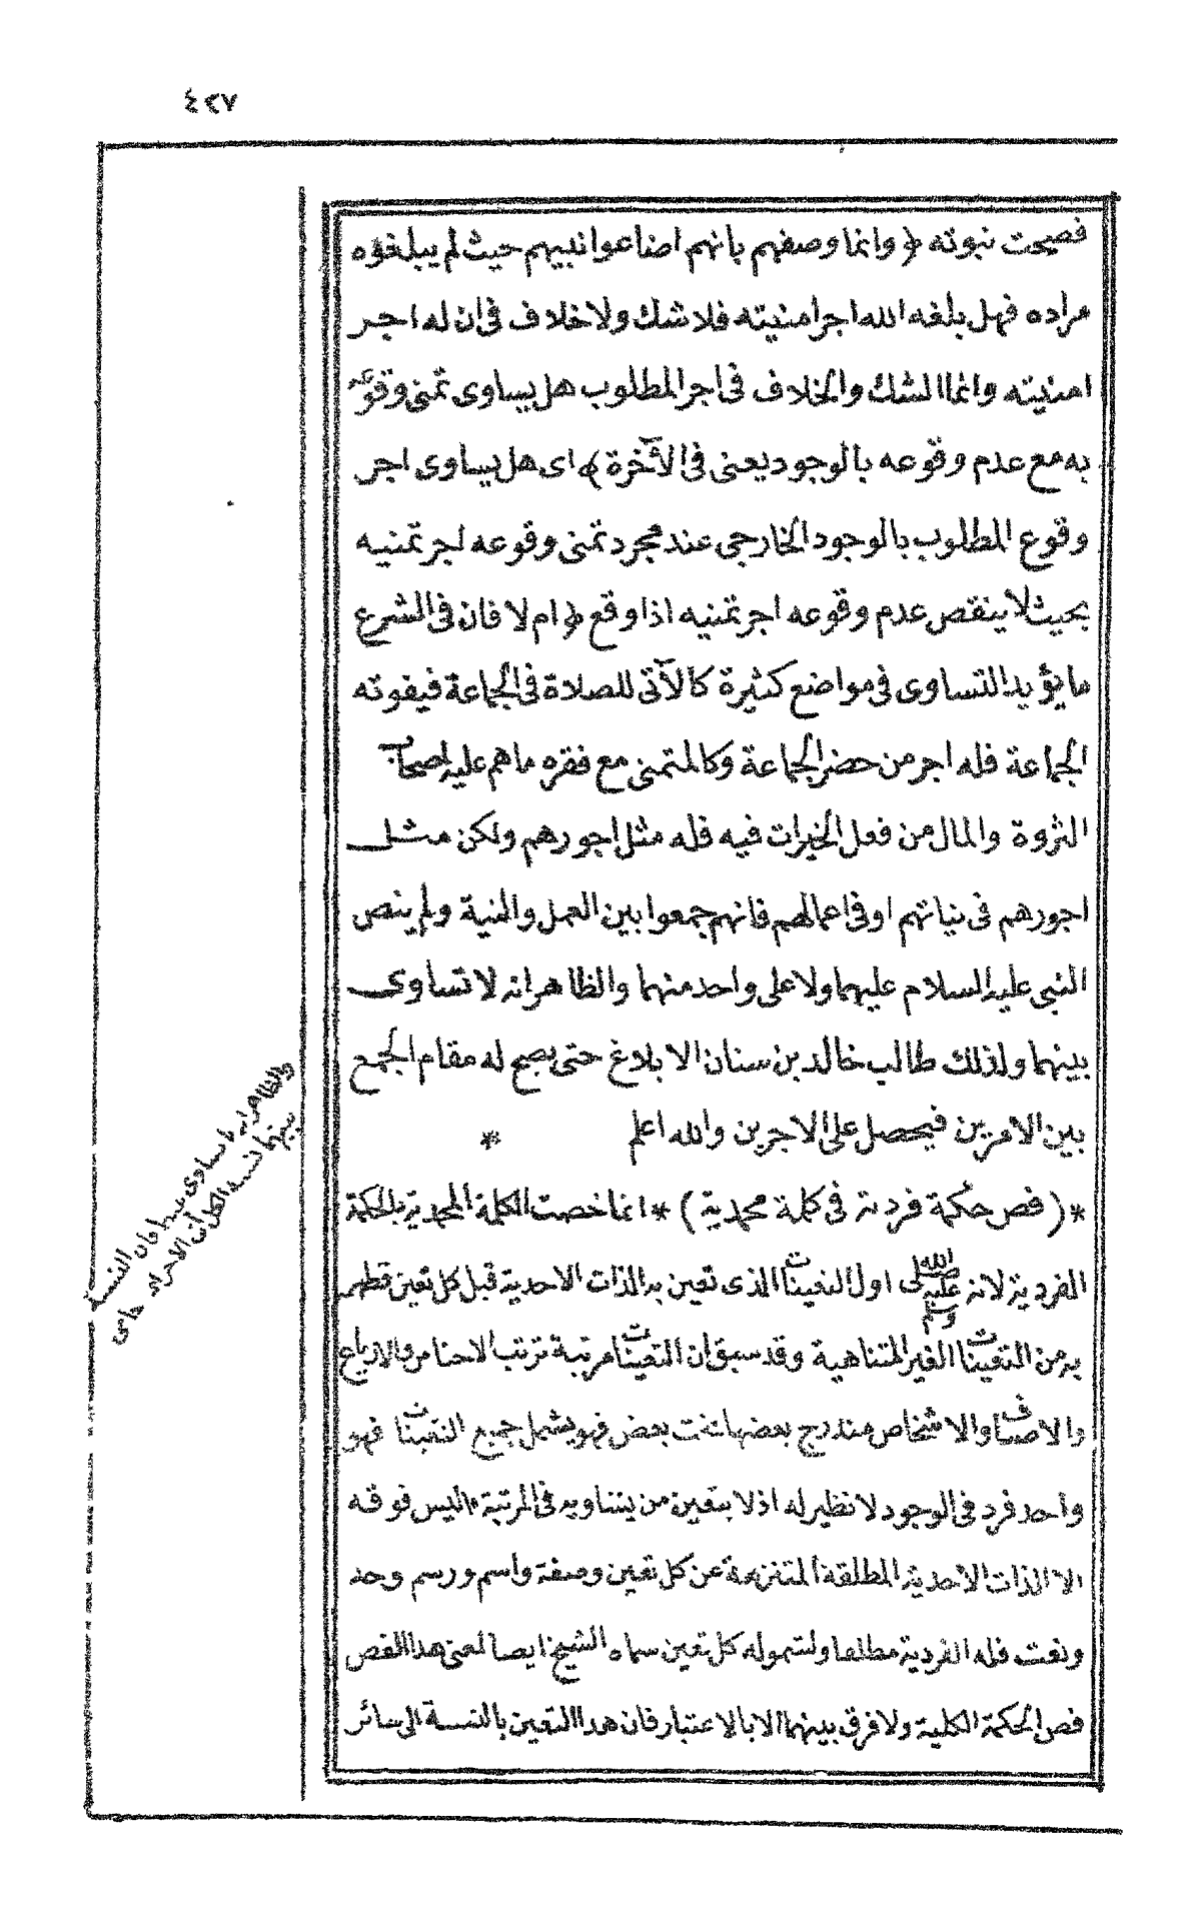 ٤٢٧
فصحت نبوته ﴿ وانما وصفهم بانهم اضاعوا نبيهم حيث لم يبلغوه
مراده فهل بلغه الله اجر امنيته فلا شك ولا خلاف فى ان له اجر
امنيته وانما الشك والخلاف فى اجر المطلوب هل يساوى تمنى وقوعه
به مع عدم وقوعه بالوجود يعنى فى الآخرة ﴾ اى هل يساوى اجر
وقوع المطلوب بالوجود الخارجى عند مجرد تمنى وقوعه اجر تمنيه
بحيث لا ينقص عدم وقوعه اجر تمنيه اذا وقع ﴿ ام لا فان فى الشرع
ما يؤيد التساوى فى مواضع كثيرة كالآتى للصلاة فى الجماعة فيفوته
الجماعة فله اجر من حضر الجماعة وكالمتمنى مع فقره ما هم عليه اصحاب
الثروة والمال من فعل الخيرات فيه فله مثل اجورهم ولكن مثل
اجورهم فى نياتهم او فى اعمالهم فانهم جمعوا بين العمل والنية ولم ينص
النبى عليه السلام عليهما ولا على واحد منهما والظاهر انه لا تساوى
بينهما ولذلك طالب خالد بن سنان الابلاغ حتى يصح له مقام الجمع
بين الامرين فيحصل على الاجرين والله اعلم *
* ( فص حكمة فردية فى كلمة محمدية ) * انما خصت الكلمة المحمدية بالحكمة
الفردية لانه صلى الله عليه وسلم اول التعينات الذى تعين به الذات الاحدية قبل كل تعين فظهر
به من التعينات الغير المتناهية وقد سبق ان التعينات مرتبة ترتب الاجناس والانواع
والاصناف والاشخاص مندرج بعضها تحت بعض فهو يشمل جميع التعينات فهو
واحد فرد فى الوجود لا نظير له اذ لا يتعين من يتساويه فى المرتبة ليس فوقه
الا الذات الاحدية المطلقة المتنزهة عن كل تعين وصفة واسم ورسم وحد
ونعت فله الفردية مطلقا ولشموله كل تعين سماه الشيخ ايضا لمعنى هذا الفص
فص الحكمة الكلية ولا فرق بينهما الا بالاعتبار فان هذا التعين بالنسبة الى سائر
والظاهر انه لا تساوى
بينهما نسبة